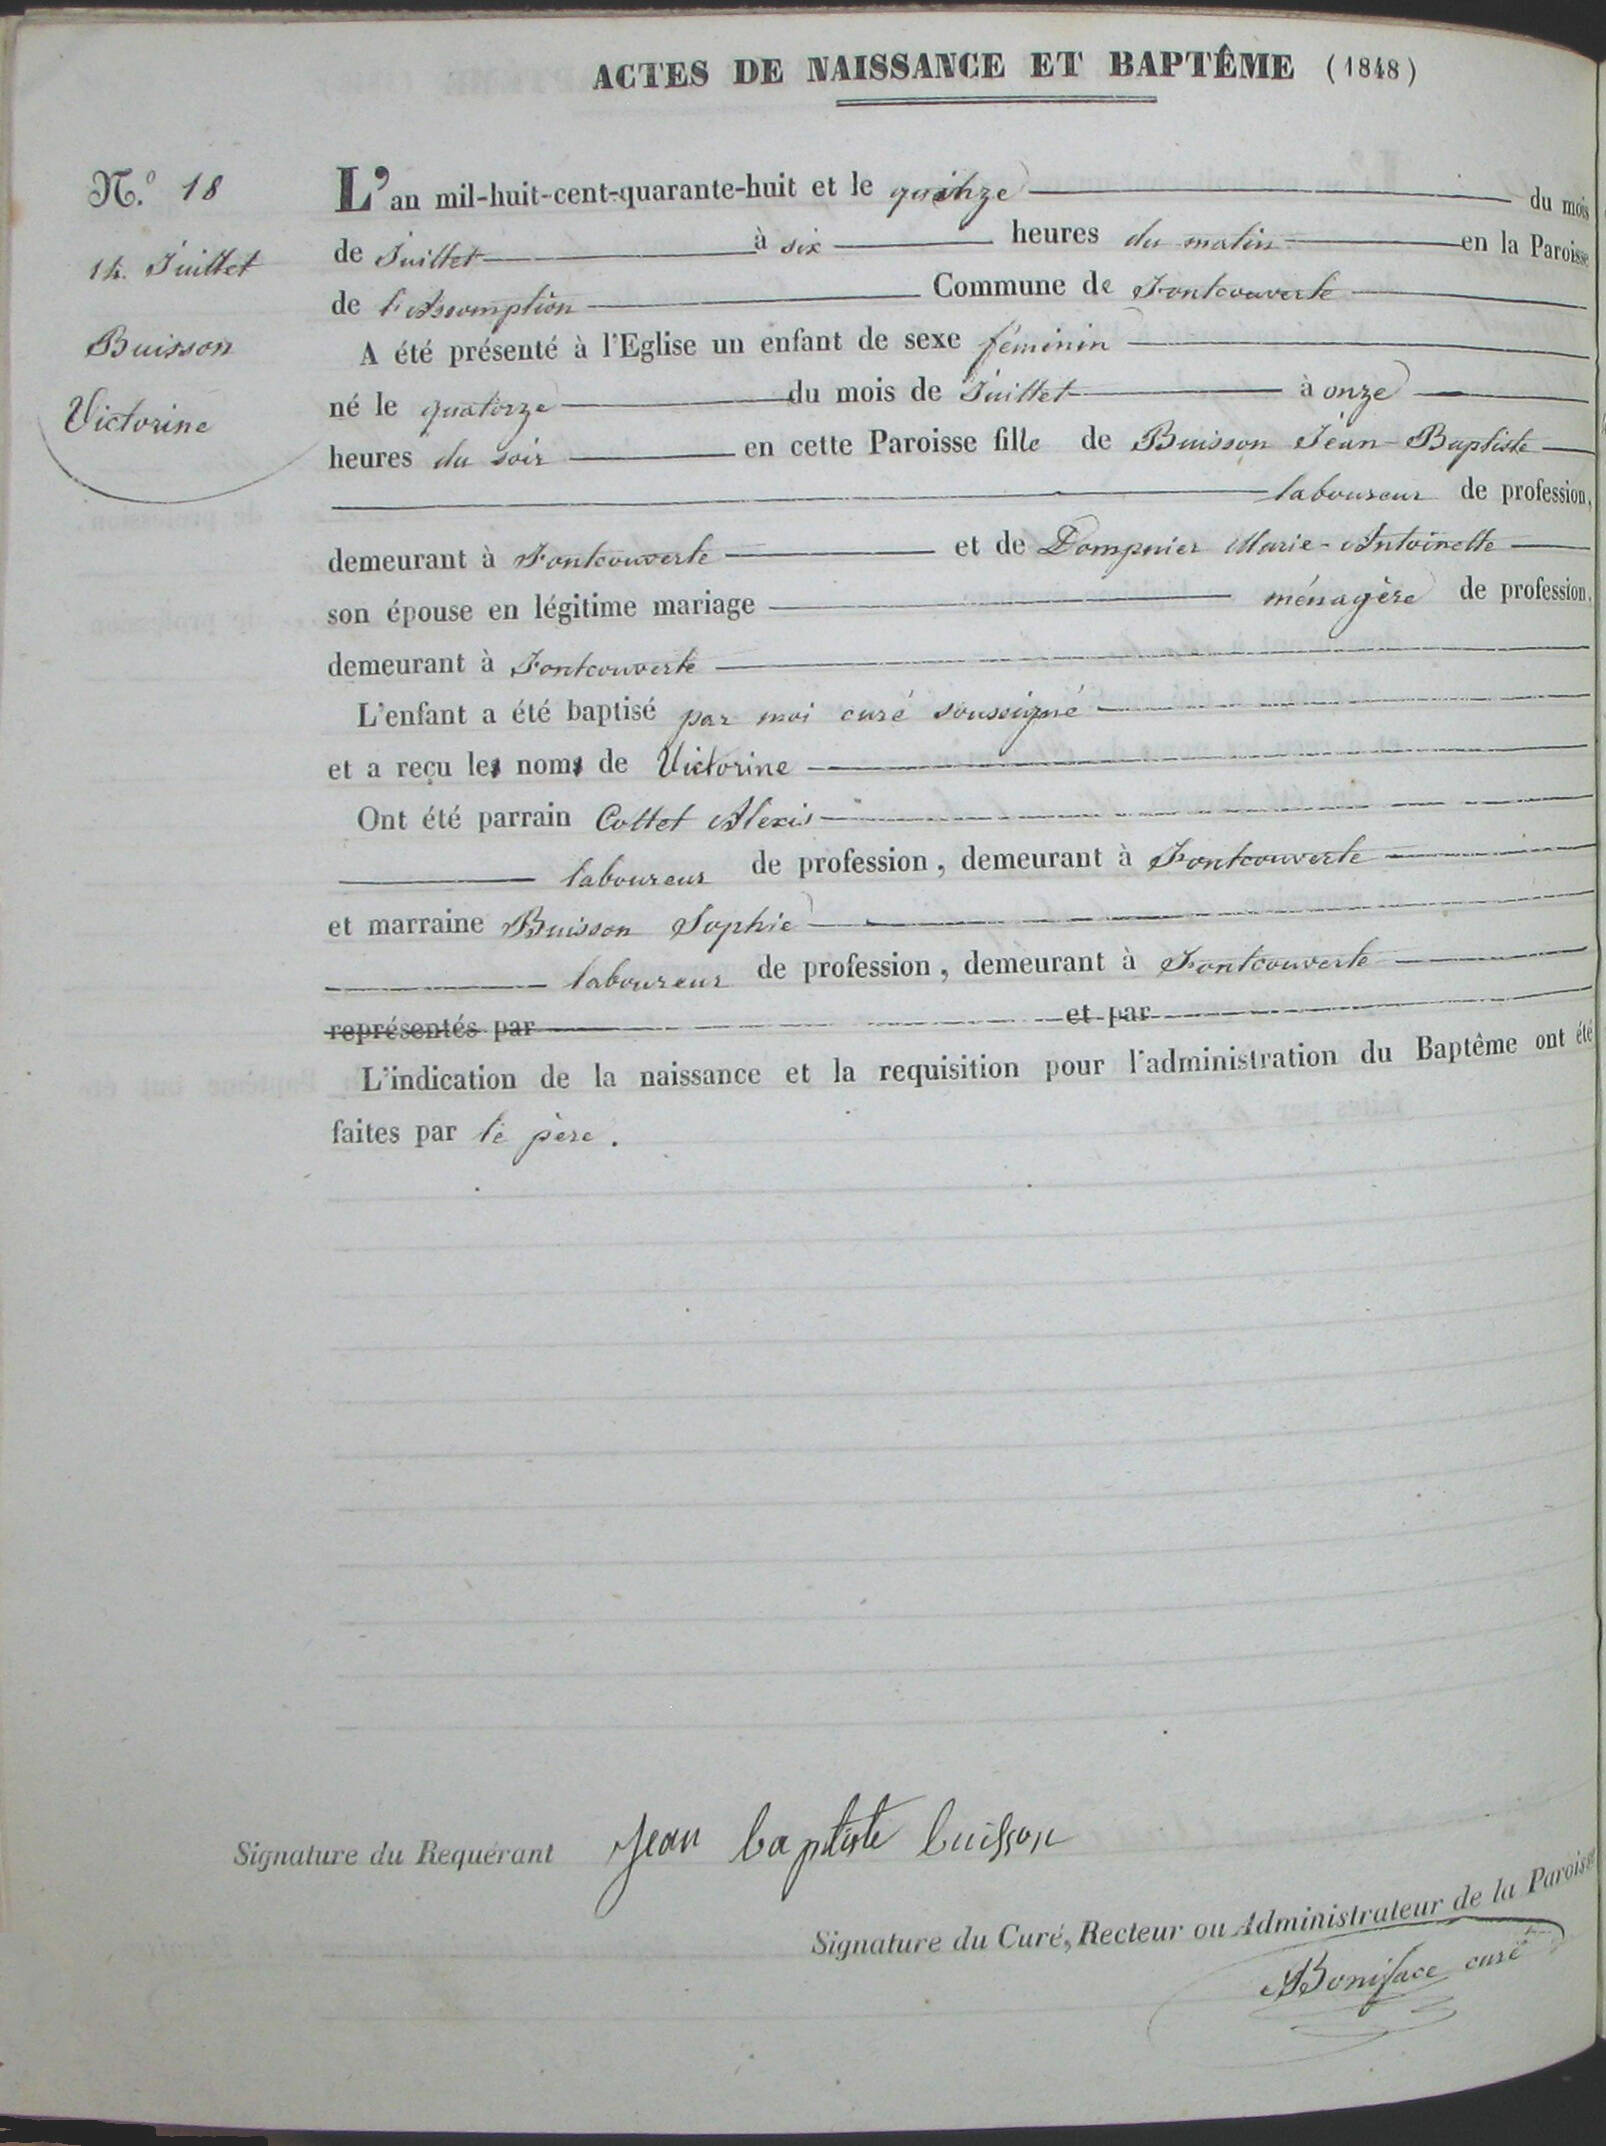 ACTES DE NAISSANCE ET BAPTÊME (1848)
N.º 18
14. Juillet
Buisson
Victorine
L'an mil-huit-cent-quarante-huit et le quinze du mois
de Juillet à six heures du matin en la Paroisse
de l'Assomption Commune de Fontcouverte
A été présenté à l'Eglise un enfant de sexe féminin
né le quatorze du mois de Juillet à onze
heures du soir en cette Paroisse fille de Buisson Jean-Baptiste
laboureur de profession,
demeurant à Fontcouverte et de Dompnier Marie-Antoinette
son épouse en légitime mariage ménagère de profession,
demeurant à Fontcouverte
L'enfant a été baptisé par moi curé soussigné
et a reçu les noms de Victorine
Ont été parrain Collet Alexis
laboureur de profession, demeurant à Fontcouverte
et marraine Buisson Sophie
laboureur de profession, demeurant à Fontcouverte
représentés par et par
L'indication de la naissance et la requisition pour l'administration du Baptême ont été
faites par le père.
Signature du Requérant Jean baptiste buisson
Signature du Curé, Recteur ou Administrateur de la Paroisse
Boniface curé